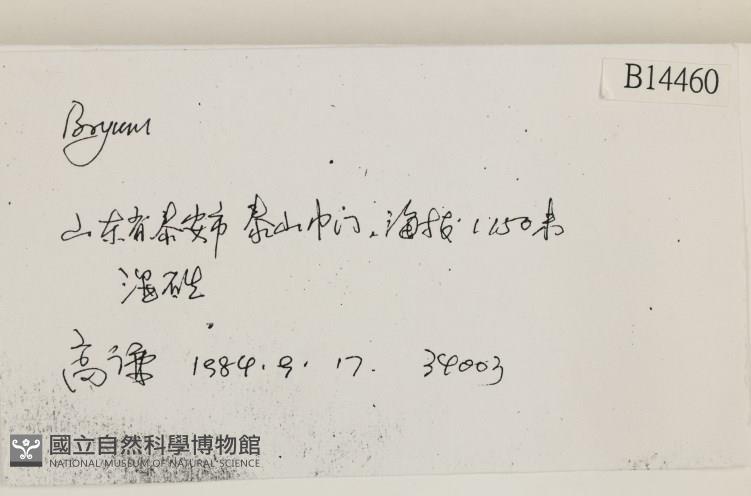 B14460
Bryum
山东省泰安市 泰山中门,海拔1150米
湿砖
高谦 1984.9.17. 34003
國立自然科學博物館
NATIONAL MUSEUM OF NATURAL SCIENCE